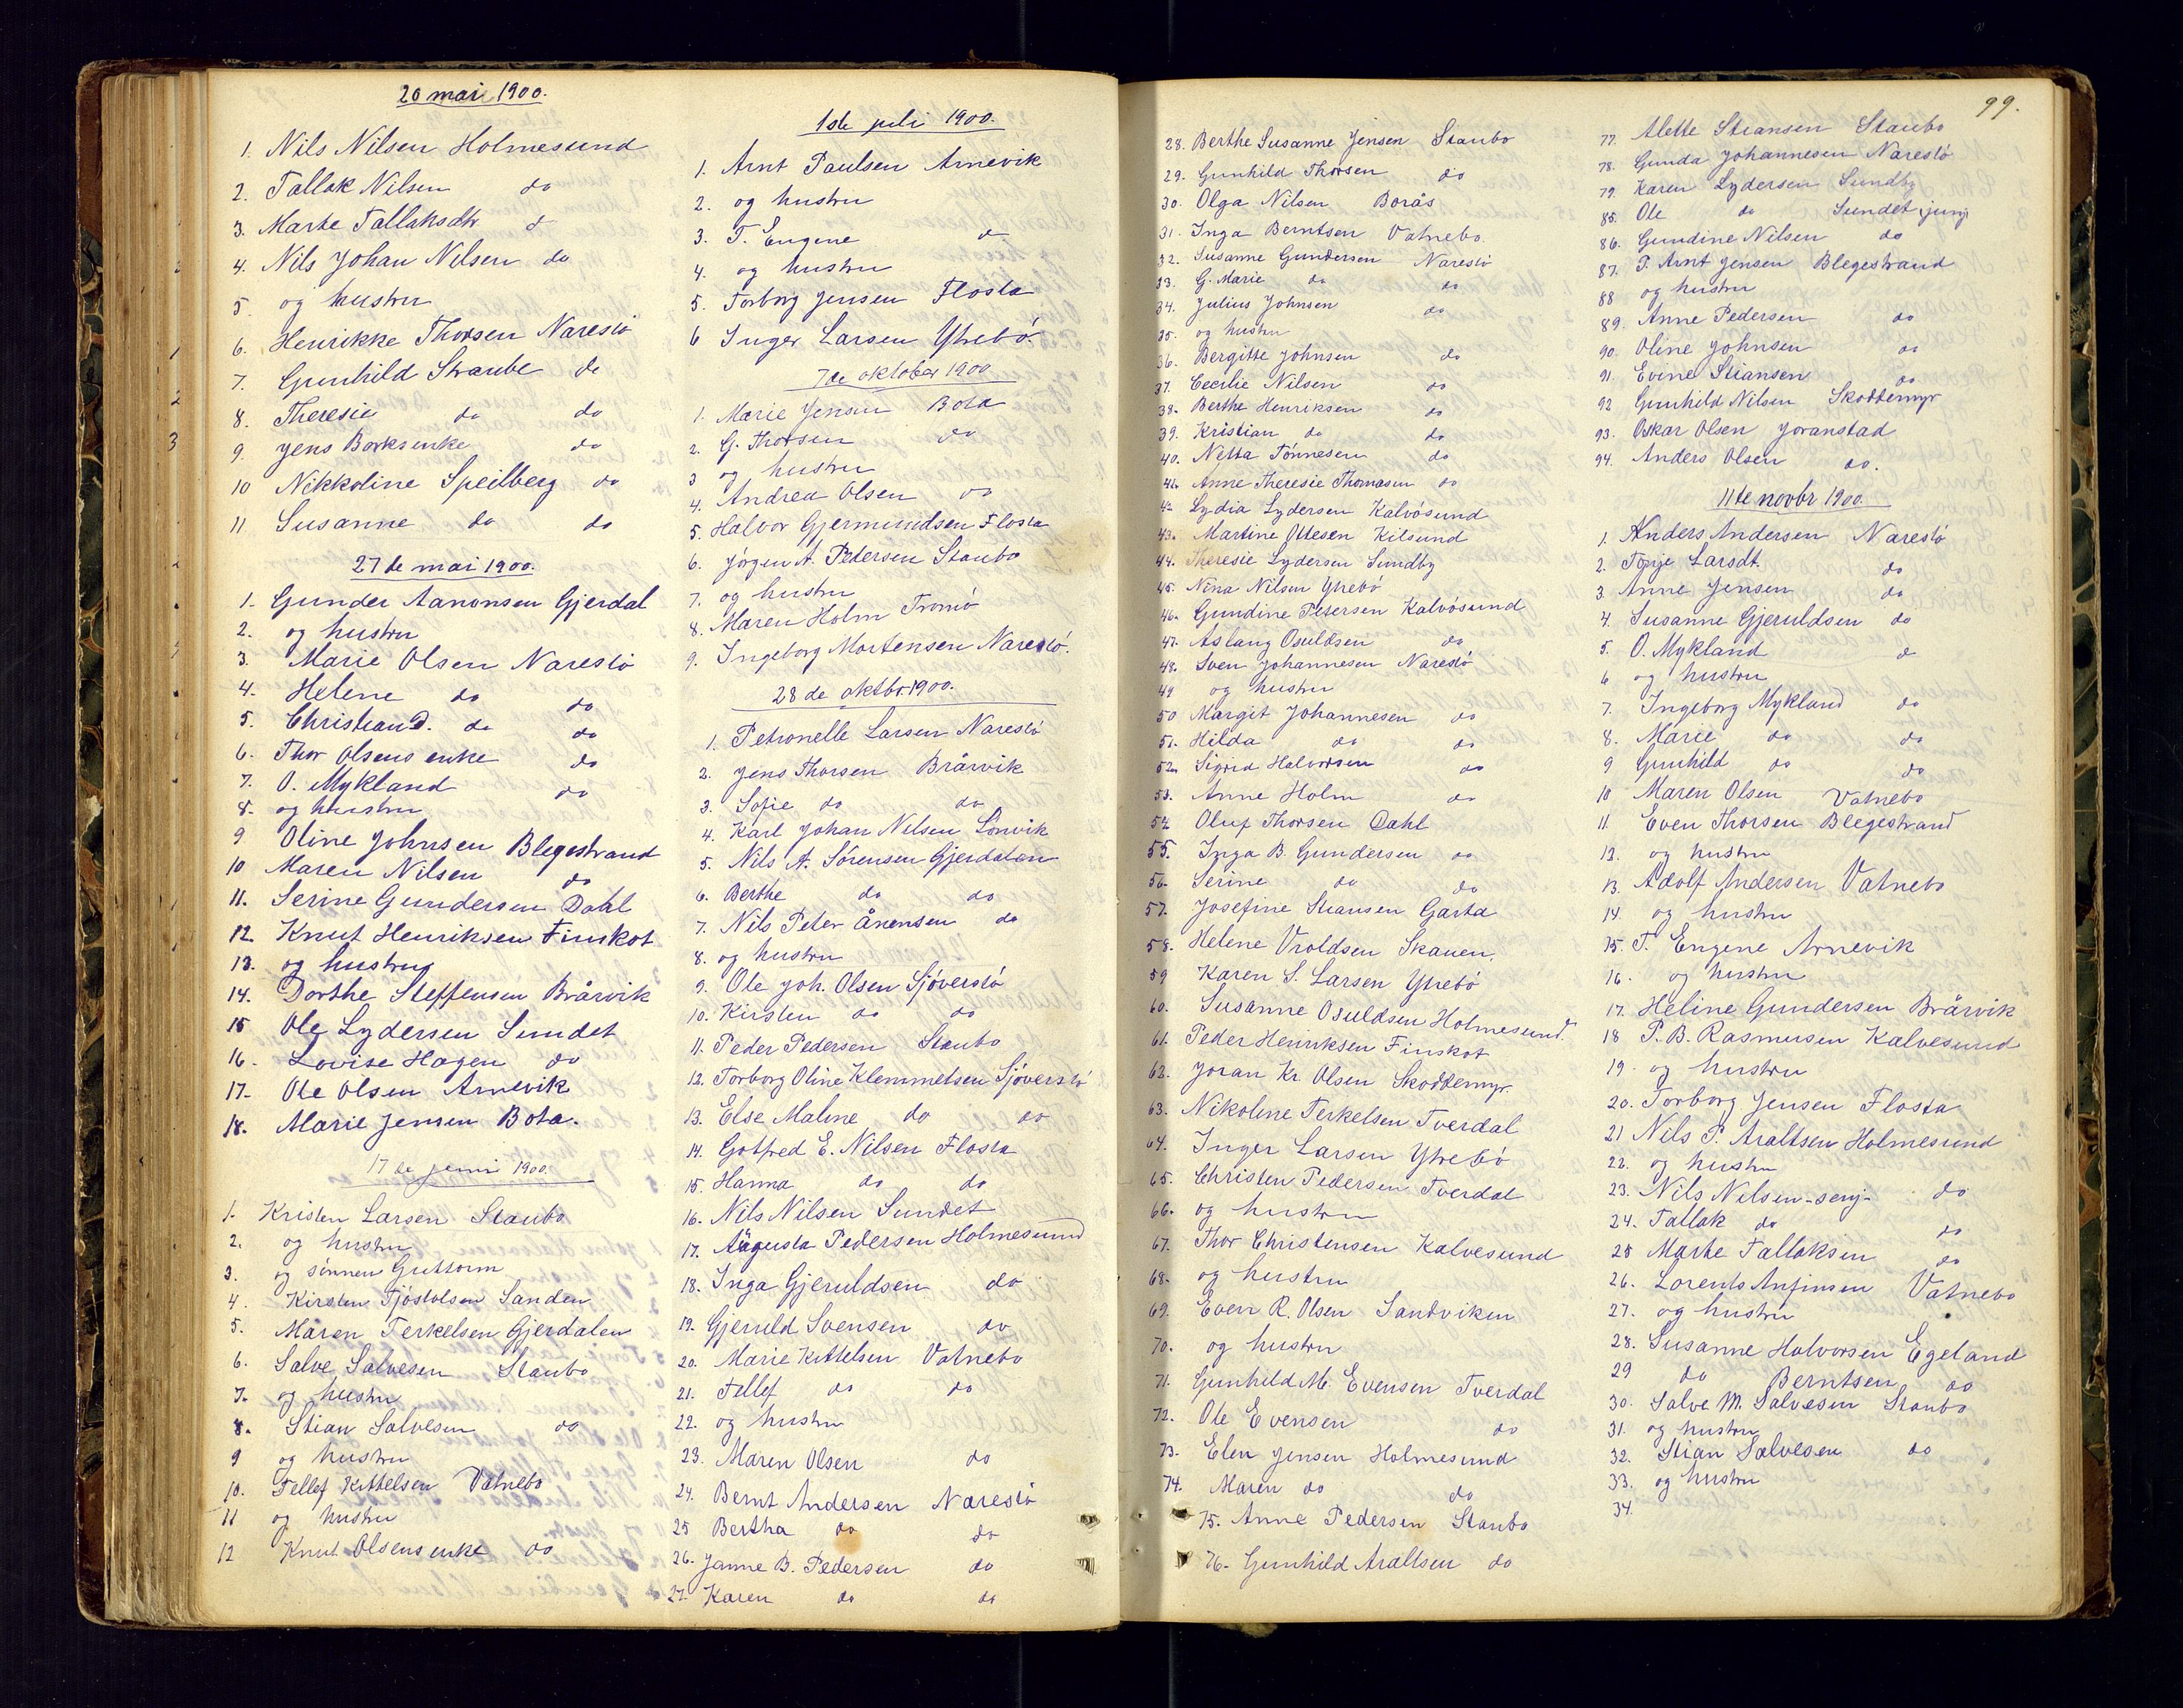 20 mai 1900.
1. Nils Nilsen Holmesund
2. Tallak Nilsen do
3. Marte Tallaksdtr d
4. Nils Johan Nilsen do
5 og hustru
6. Henrikke Thorsen Narestö
7. Gunhild Straube do
8. Theresie do do
9. Jens Borks enke do
10 Nikkoline Speilberg do
11. Susanne do do
27de mai 1900.
1. Gunder Aanonsen Gjerdal
2. og hustru
3. Marie Olsen Narestö
4. Helene do do
5. Christian do do
6. Thor Olsens enke do
7. O. Mykland do
8. og hustru
9 Oline Johnsen Blegestrand
10 Maren Nilsen do
11. Serine Gundersen Dahl
12. Knut Henriksen Finskot
13. og hustru
14. Dorthe Steffensen Brårvik
15 Ole Lydersen Sundet
16. Lovise Hagen do
17. Ole Olsen Arnevik
18. Marie Jensen Bota.
17de juni 1900.
1. Kristen Larsen Staubo
2. og hustru
3. og sönnen Guttorm
4. Kirsten Tjöstolsen Sanden
5. Maren Terkelsen Gjerdalen
6. Salve Salvesen Staubo
7. og hustru
8. Stian Salvesen do
9 og hustru
10. Tellef Kittelsen Vatnebo
11 og hustru
12 Knut Olsens enke do
1ste juli 1900.
1. Arnt Paulsen Arnevik
2. og hustru
3. T. Eugene d
4. og hustru
5. Torborg Jensen Flosta
6 Inger Larsen Ytrebö
7de oktober 1900
1. Marie Jensen Bota
2. G. Thorsen do
3 og hustru
4. Andrea Olsen do
5. Halvor Gjermundsen Flosta
6. Jörgen A. Pedersen Staubo
7. og hustru
8. Maren Holm Tromö
9. Ingeborg Mortensen Narestö.
28de oktbr 1900.
1. Petronelle Larsen Narestö
2. Jens Thorsen Brårvik
3. Sofie do do
4. Karl Johan Nilsen Lönvik
5. Nils A. Sörensen Gjerdalen
6. Berthe do do
7. Nils Peter Ånensen do
8. og hustru
9. Ole Joh. Olsen Sjöverstö
10. Kirsten do do
11. Peder Pedersen Staubo
12. Torborg Oline Klemmetsen Sjöverstö
13. Else Maline do do
14. Gotfred E. Nilsen Flosta
15. Hanna do do
16. Nils Nilsen Sundet
17. Augusta Pedersen Holmesund
18. Inga Gjeruldsen do
19. Gjeruld Svensen do
20. Marie Kittelsen Vatnebo
21. Tellef do do
22. og hustru
23. Maren Olsen do
24. Bernt Andersen Narestö
25 Bertha do do
26. Janne B. Pedersen do
27. Karen do do
99.
28. Berthe Susanne Jensen Staubo
29. Gunhild Thorsen do
30. Olga Nilsen Borås
31. Inga Berntsen Vatnebo.
32. Susanne Gundersen Narestö
33. G. Marie do do
34. Julius Johnsen do
35. og hustru
36. Bergitte Johnsen do
37. Cecilie Nilsen do
38. Berthe Henriksen do
39. Kristian do do
40. Netta Tönnesen do
41. Anne Theresie Thomasen do
42 Lydia Lydersen Kalvösund
43. Martine Ottesen Kilsund
44. Theresie Lydersen Sundby
45. Nina Nilsen Ytrebö
46. Gundine Petersen Kalvösund
47. Aslaug Osuldsen do
48. Sven Johannesen Narestö
49 og hustru
50 Margit Johannesen do
51. Hilda do do
52. Sigrid Halvorsen do
53. Anne Holm do
54 Oluf Thorsen Dahl
55. Inga B. Gundersen do
56. Serine do do
57. Josefine Stiansen Garta
58. Helene Vroldsen Skauen.
59 Karen S. Larsen Ytrebö
60. Susanne Osuldsen Holmesund.
61. Peder Henriksen Finskot
62. Joran Kr. Olsen Skoddemyr.
63. Nikoline Terkelsen Tverdal
64. Inger Larsen Ytrebö
65. Christen Pedersen Tverdal
66. og hustru
67. Thor Christensen Kalvesund
68. og hustru
69. Even R. Olsen Sandviken
70. og hustru
71. Gunhild M. Evensen Tverdal
72. Ole Evensen do
73. Elen Jensen Holmesund
74. Maren do do
75. Anne Pedersen Staubo
76. Gunhild Araltsen do
77. Alette Stiansen Staubo
78. Gunda Johannesen Narestö
79. Karen Lydersen Sundby
85. Ole do Sundet junj
86. Gundine Nilsen do
87. P. Arnt Jensen Blegestrand
88 og hustru
89. Anne Pedersen do
90. Oline Johnsen do
91. Evine Stiansen do
92 Gunhild Nilsen Skoddemyr
93. Oskar Olsen Joranstad
94. Anders Olsen do.
11te novbr 1900.
1. Anders Andersen Narestö
2. Tonje Larsdt. do
3. Anne Jensen do
4. Susanne Gjeruldsen do
5. O. Mykland d
6 og hustru
7. Ingeborg Mykland do
8. Marie do do
9 Gunhild do do
10 Maren Olsen Vatnebo
11. Even Thorsen Blegestrand
12. og hustru
13. Adolf Andersen Vatnebo
14. og hustru
15. T. Eugene Arnevik
16. og hustru
17. Heline Gundersen Brårvik
18 P. B. Rasmusen Kalvesund
19. og hustru
20. Torborg Jensen Flosta
21 Nils P. Araltsen Holmesund
22. og hustru
23. Nils Nilsen senj. do
24. Tallak do do
25 Marte Tallaksen do
26. Lorents Anfinsen Vatnebo
27. og hustru
28. Susanne Halvorsen Egeland
29 do Berntsen do
30. Salve M. Salvesen Staubo
31. og hustru
32. Stian Salvesen do
33. og hustru
34.